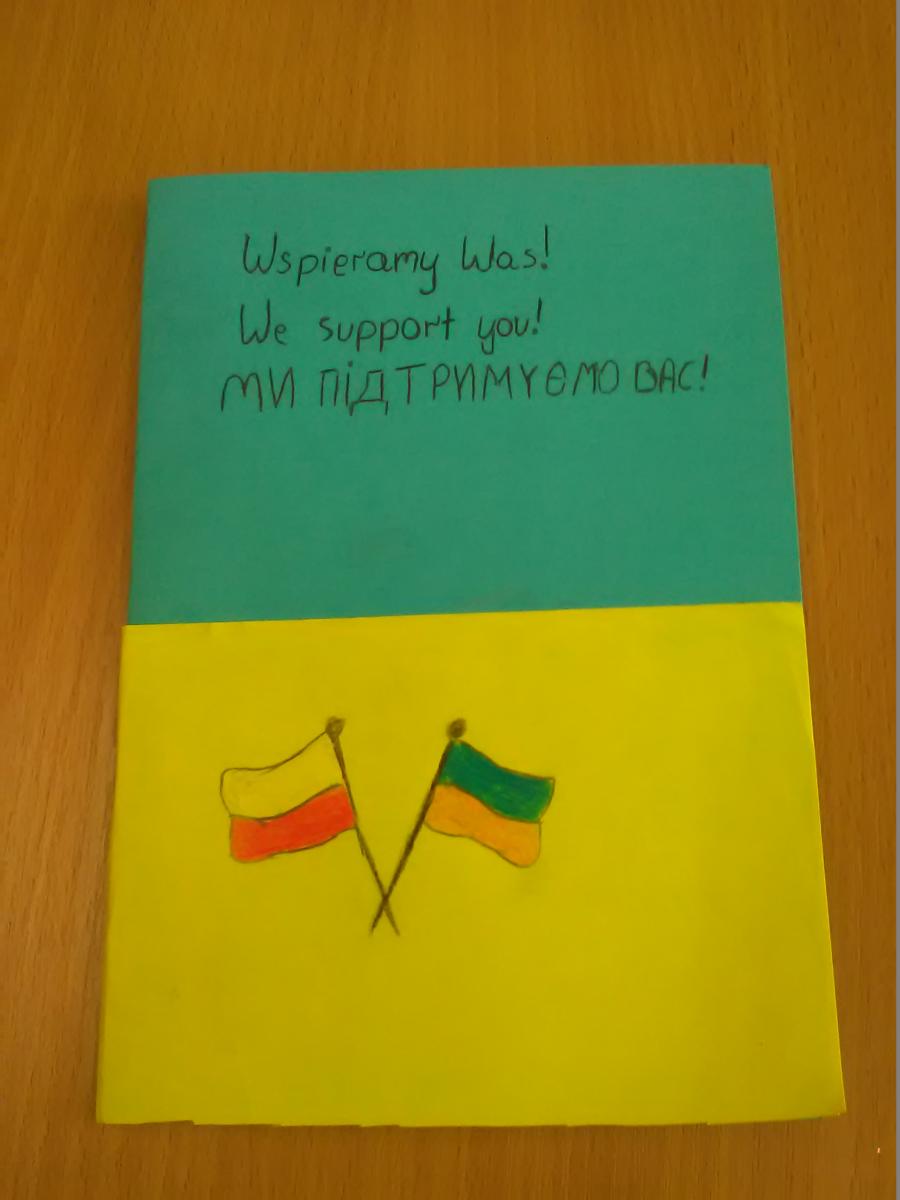 Wspieramy Was!
We support you!
МИ ПіДТРИМУЄМО ВАС!